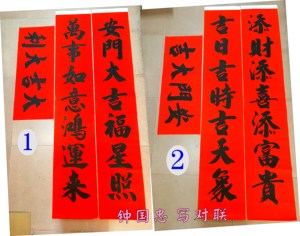 大吉大利
安門大吉福星照
萬事如意鴻運来
1
安門大吉
添財添喜添富貴
吉日吉時吉天象
2
钟国惠 写对联